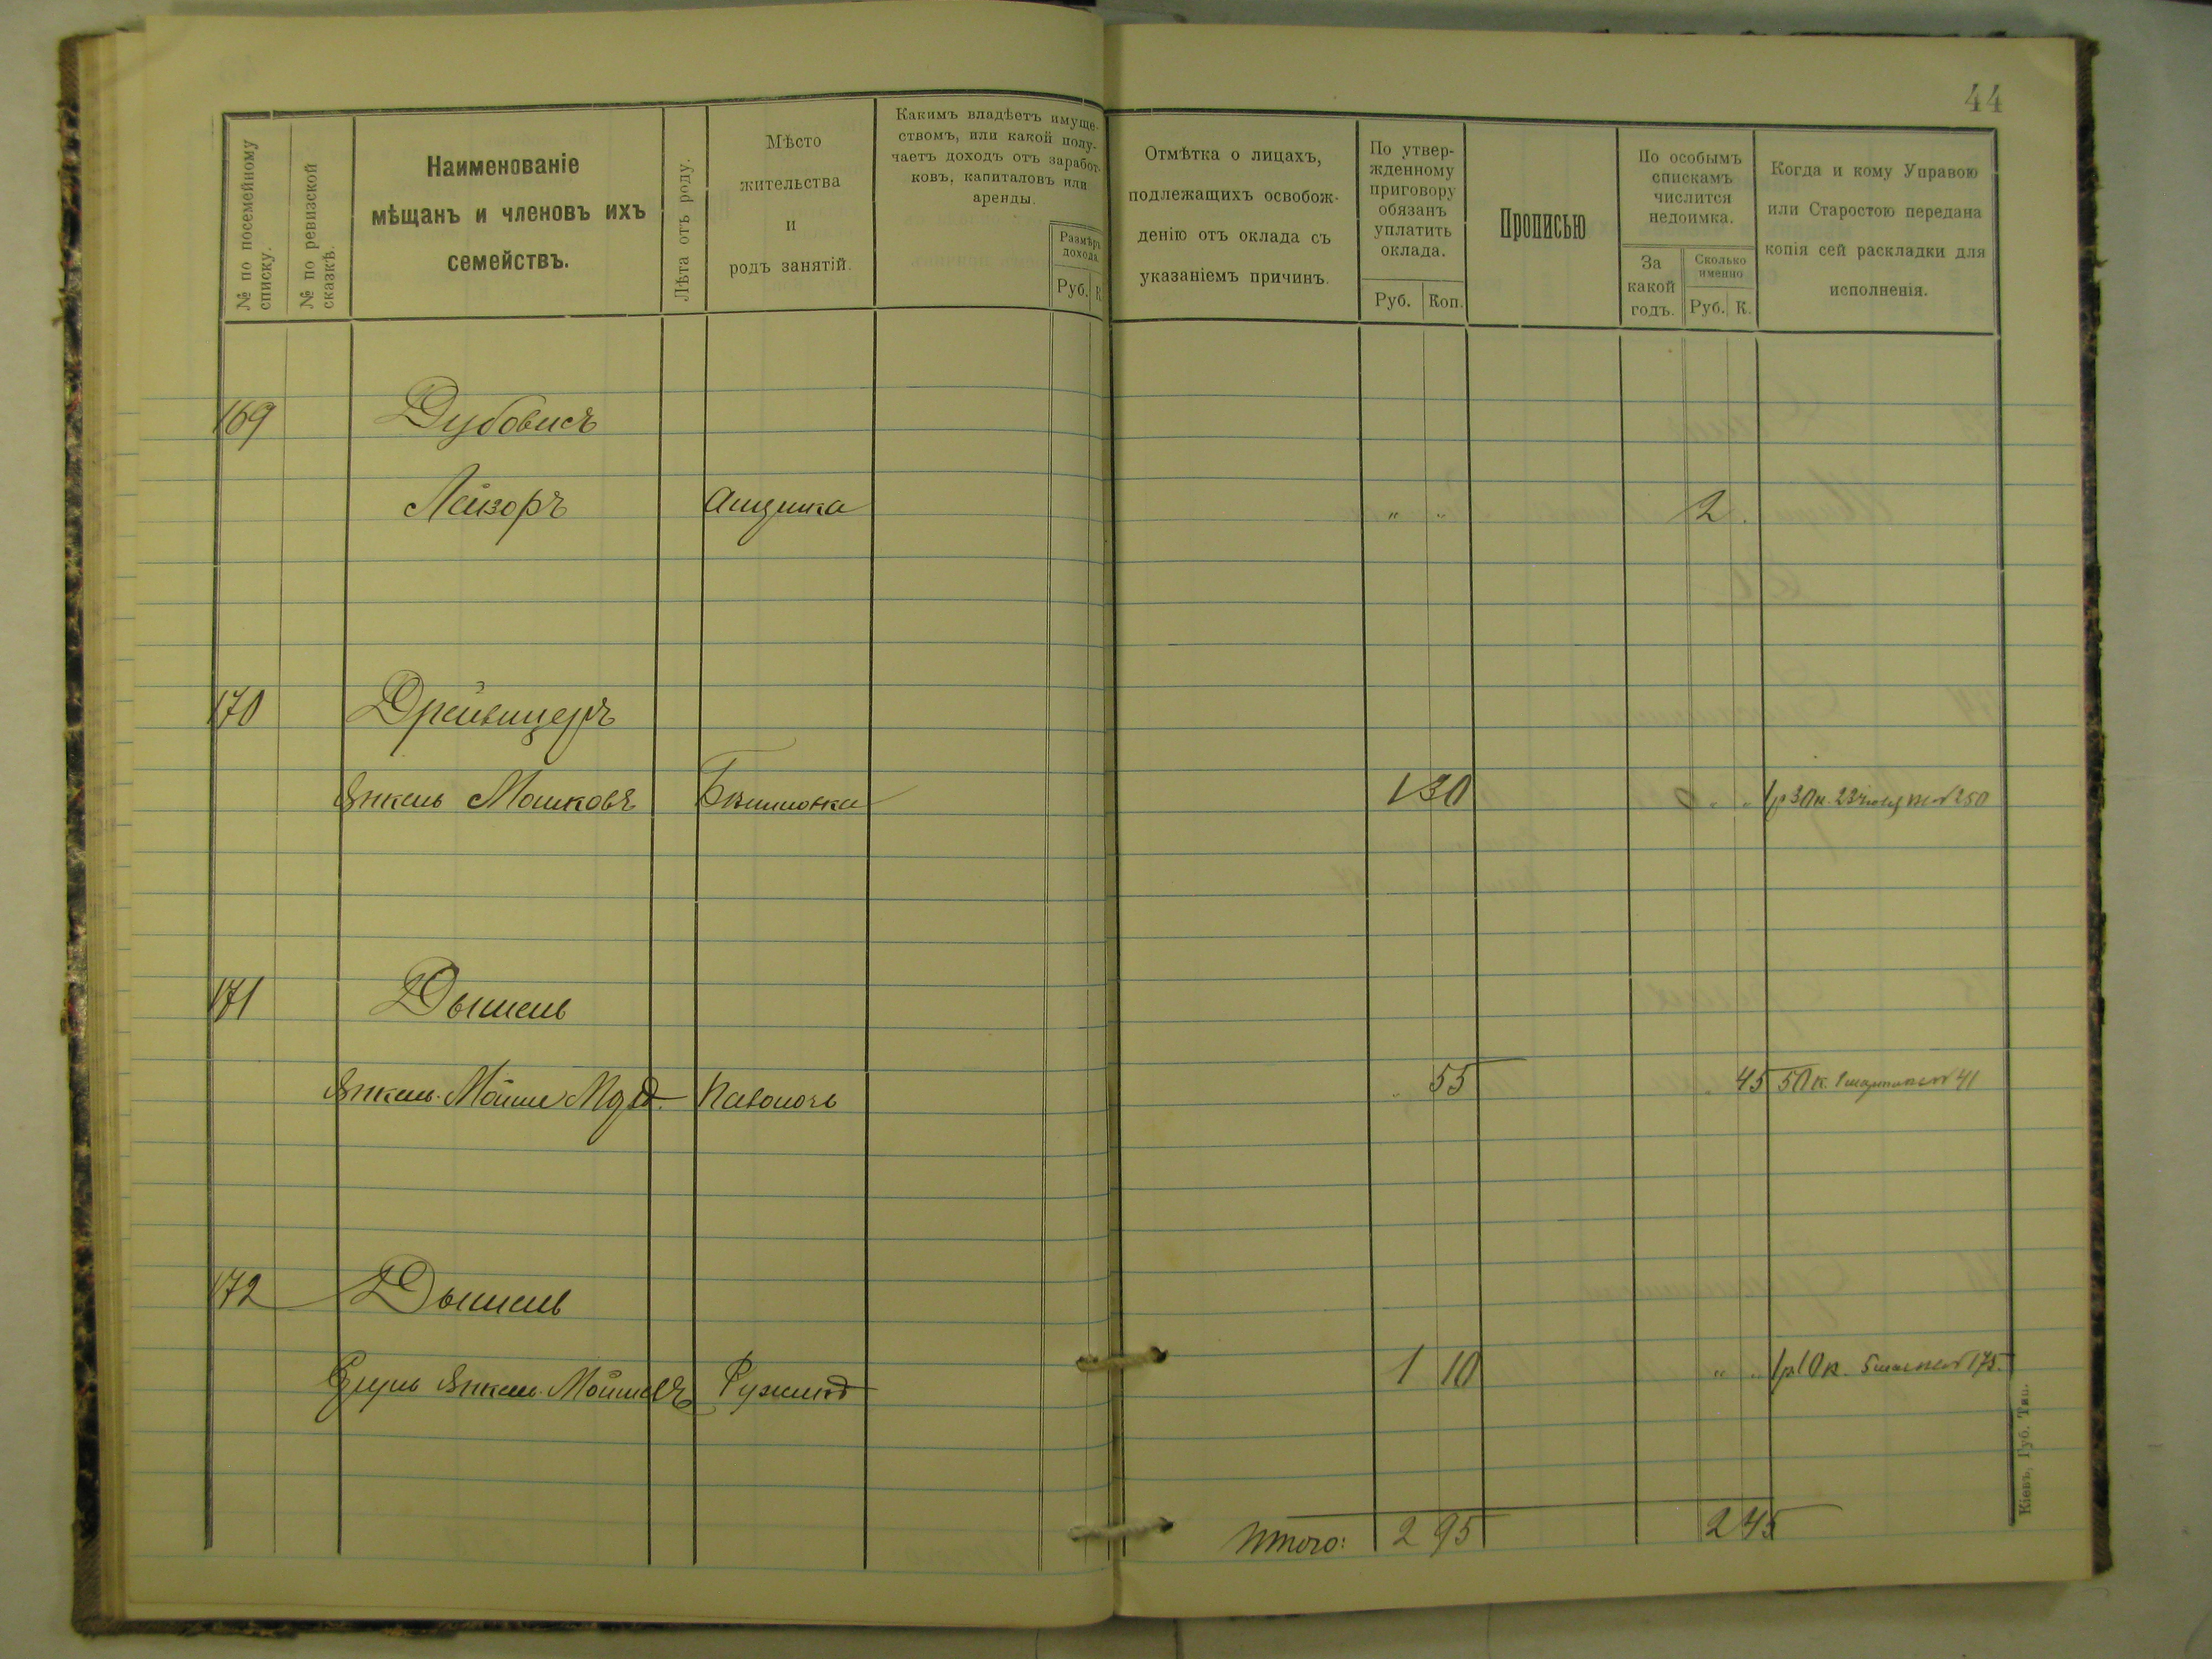 44
№ по посемейному списку.
№ по ревизской сказкѣ.
Наименованіе
мѣщанъ и членовъ ихъ
семействъ.
Лѣта отъ роду.
Мѣсто
жительства
и
родъ занятій.
Какимъ владѣетъ имуще-
ствомъ, или какой полу-
чаетъ доходъ отъ заработ-
ковъ, капиталовъ или
аренды.
Размѣръ
дохода.
Руб. К.
Отмѣтка о лицахъ,
подлежащихъ освобож-
денію отъ оклада съ
указаніемъ причинъ.
По утвер-
жденному
приговору
обязанъ
уплатить
оклада.
Руб. Коп.
Прописью
По особымъ
спискамъ
числится
недоимка.
За
какой
годъ.
Сколько
именно
Руб. К.
Когда и кому Управою
или Старостою передана
копія сей раскладки для
исполненія.
169 Дубовисъ
Лейзоръ " " 2
170 Дрейвицеръ
Янкель Мошковъ 1 30 " " 1 р 30 к. 23 № 250
171 Дышель
Янкель Мойше Паволочь " 55 " 45 50 к. № 41
172 Дышель
Янкель Мойшевъ Ружинъ 1 10 " " 1 р 10 к. 5 № 175.
Итого: 2 95 2 45
Кіевъ, Губ. Тип.